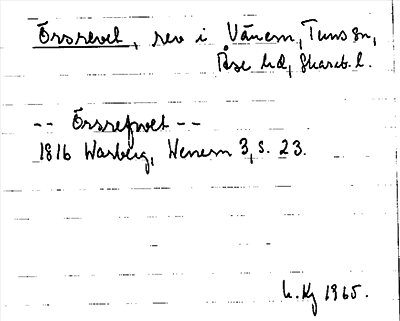 Örsrevet, rev i Vänern, Tuns sn,
Åse hd, Skarab. l.
-- Örsrefvet --
1816 Warberg, Wenern 3, s. 23.
L. Kg 1965.